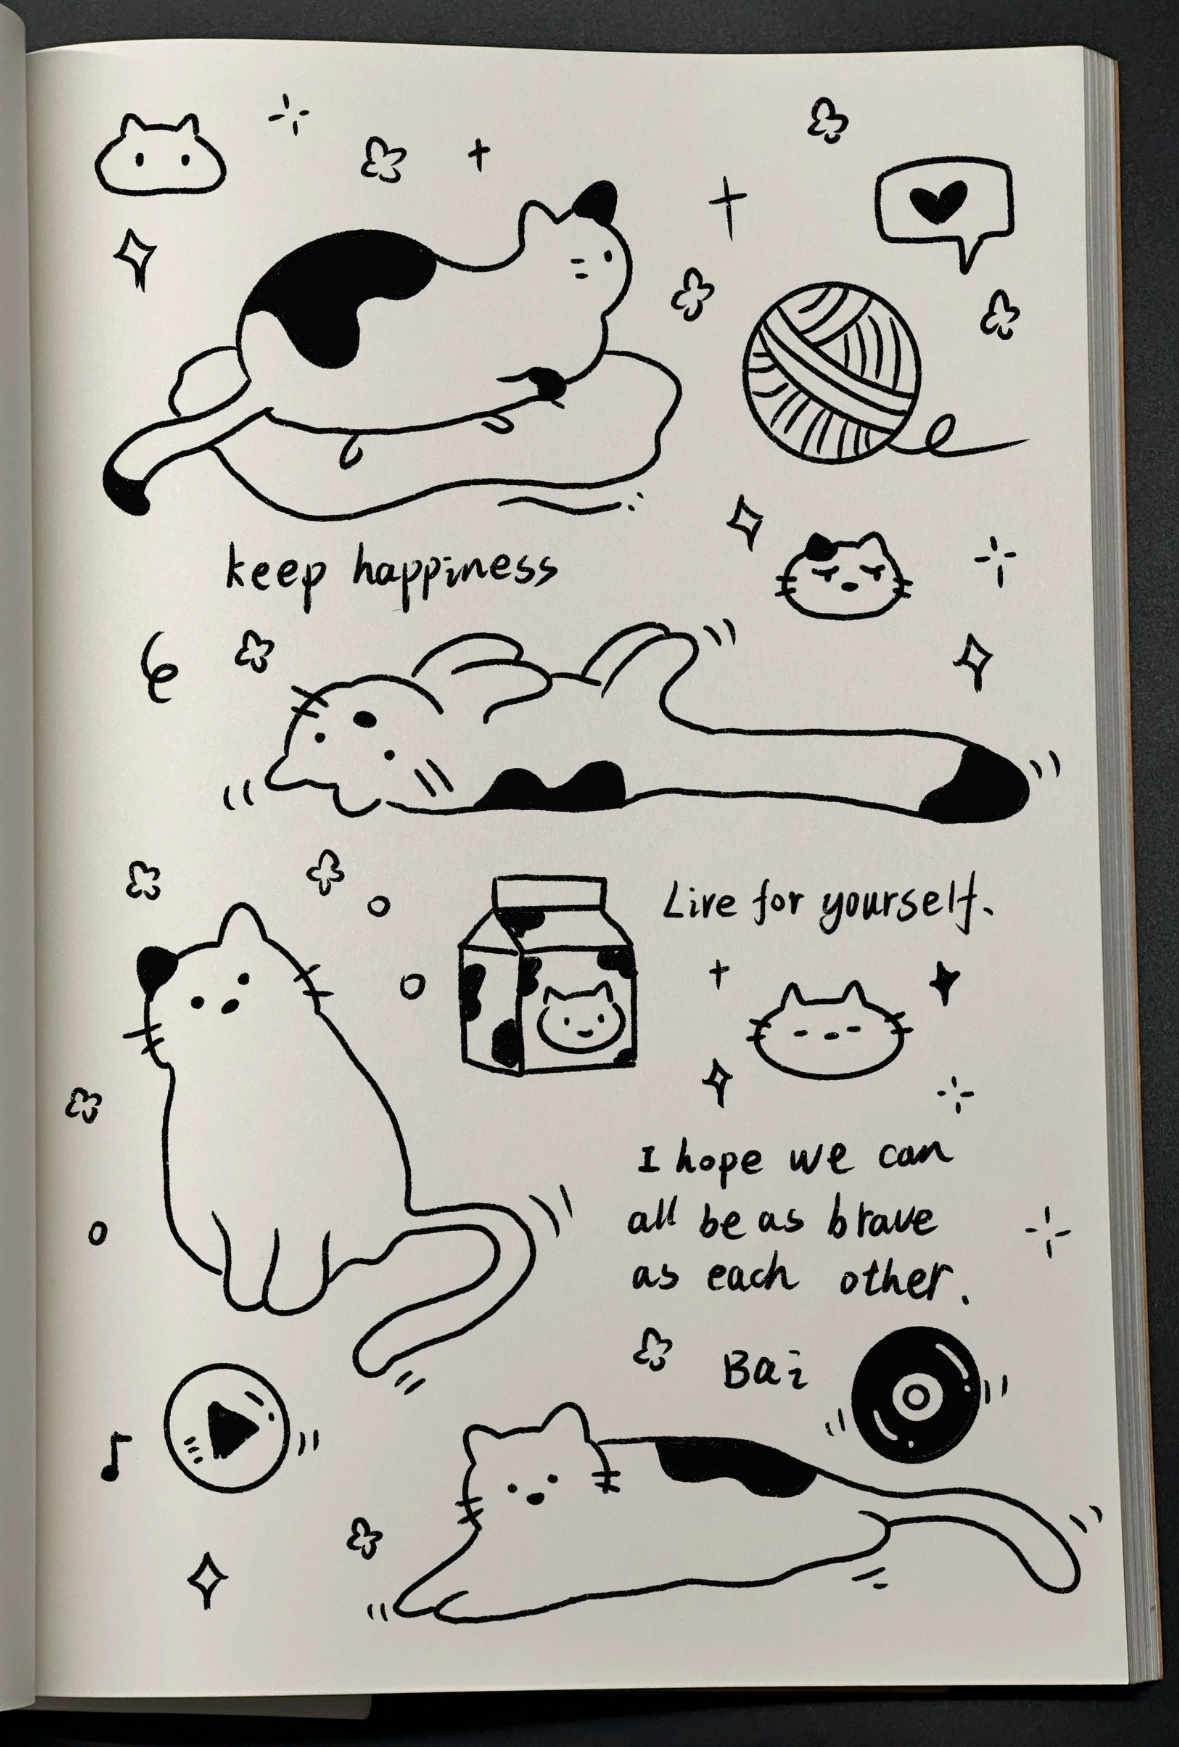 keep happiness
Live for yourself.
I hope we can
all be as brave
as each other.
Bai